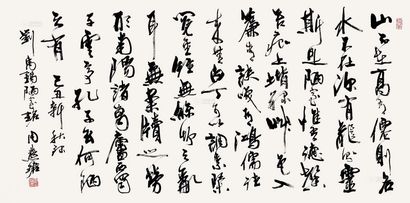 山不在高有僊則名
水不在深有龍則靈
斯是陋室惟吾德馨
苔痕上堦綠艸色入
簾青談笑有鴻儒往
来無白丁可以調素琴
閱金經無絲竹之亂
耳無案牘之勞
形南陽諸葛廬西蜀
子雲亭孔子云何陋
之有 己丑新秋錄
劉禹錫陋室銘 周慧珺